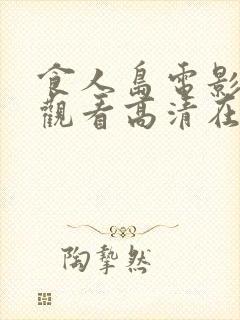 食人島電影
觀看高清在
陶摯然